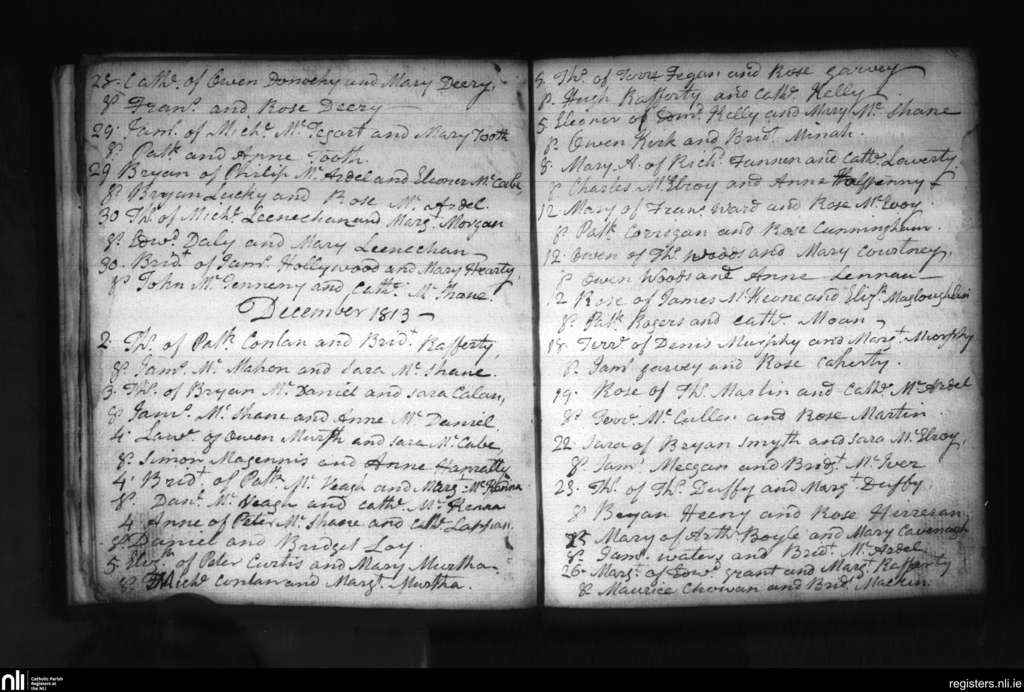 28. Cathe. of Owen Donoghy and Mary Deery,
Sp. Frans. and Rose Deery
29. Jams. of Miche. Mc. Tegart and Mary Tooth
Sp. Patk. and Anne Tooth.
29 Bryan of Philip Mc. Ardel and Eleoner Mc. Cabe,
Sp. Bryan Lucky and Rose Mc. Ardel.
30 Ths. of Michl. Leenechan and Margt. Morgan
Sp. Edwd. Daly and Mary Leenechan
30. Bridt. of Jams. Hollywood and Mary Hearty,
Sp. John Mc. and Cathe. Mc. Shane.
December 1813
2. Ths. of Patk. Conlan and Bridt. Rafferty,
Sp. Jams. Mc. Mahon and Sara Mc. Shane.
3. Ths. of Bryan Mc. Daniel and Sara Calan,
Sp. Jams. Mc. Shane and Anne Mc. Daniel.
4. Lawe. of Owen Murph and Sara Mc. Cabe
Sp. Simon Magennis and Anne Hanratty
4. Bridt. of Patk. Mc. Veagh and Margt. Mc. Kenna
Sp. Danl. Mc. Veagh and Cathe. Mc. Kenna
4 Anne of Peter Mc. Shane and Cathe. Lappan.
Sp. Daniel and Bridget Loy.
5 Elizth. of Peter Curtis and Mary Murtha.
Sp. Miche. Conlan and Margt. Murtha.
5. Ths. of Terre Fegan and Rose Garvey
Sp. Hugh Rafferty and Cathe. Kelly
5. Eleoner of Edmd. Kelly and Mary Mc. Shane
Sp. Owen Kirk and Bridt. Minah.
8 Mary A. of Richd. Fannen and Cathe. Laverty,
Sp. Charles Mc. Elroy and Anne Halfpenny
12 Mary of Frans. Ward and Rose Mc. Evoy.
Sp. Patk. Corrigan and Rose Cunningham.
12. Owen of Ths. Woods and Mary Courtney,
Sp. Owen Woods and Anne Lennan
12 Rose of James Mc. Keone and Elizth.
Sp. Patk. Rogers and Cathe. Moan
18. Terre. of Denis Murphy and Margt. Murphy
Sp. Jams. Garvey and Rose Caherty.
19. Rose of Ths. Martin and Cathe. Mc. Ardel
Sp. Terre. Mc. Cullen and Rose Martin.
22. Sara of Bryan Smyth and Sara Mc. Elroy,
Sp. Jams. Meegan and Bridt. Mc. Iver
23. Ths. of Ths. Duffy and Margt. Duffy.
Sp. Bryan Heeny and Rose Herreran.
25 Mary of Arthr. Boyle and Mary Cavenagh
Sp. Jams. Waters and Bridt. Mc. Ardel
26. Margt. of Edwd. Grant and Margt. Rafferty
Sp. Maurice Chowan and Bridt. Mackin.
nli Catholic Parish Registers at the NLI
registers.nli.ie